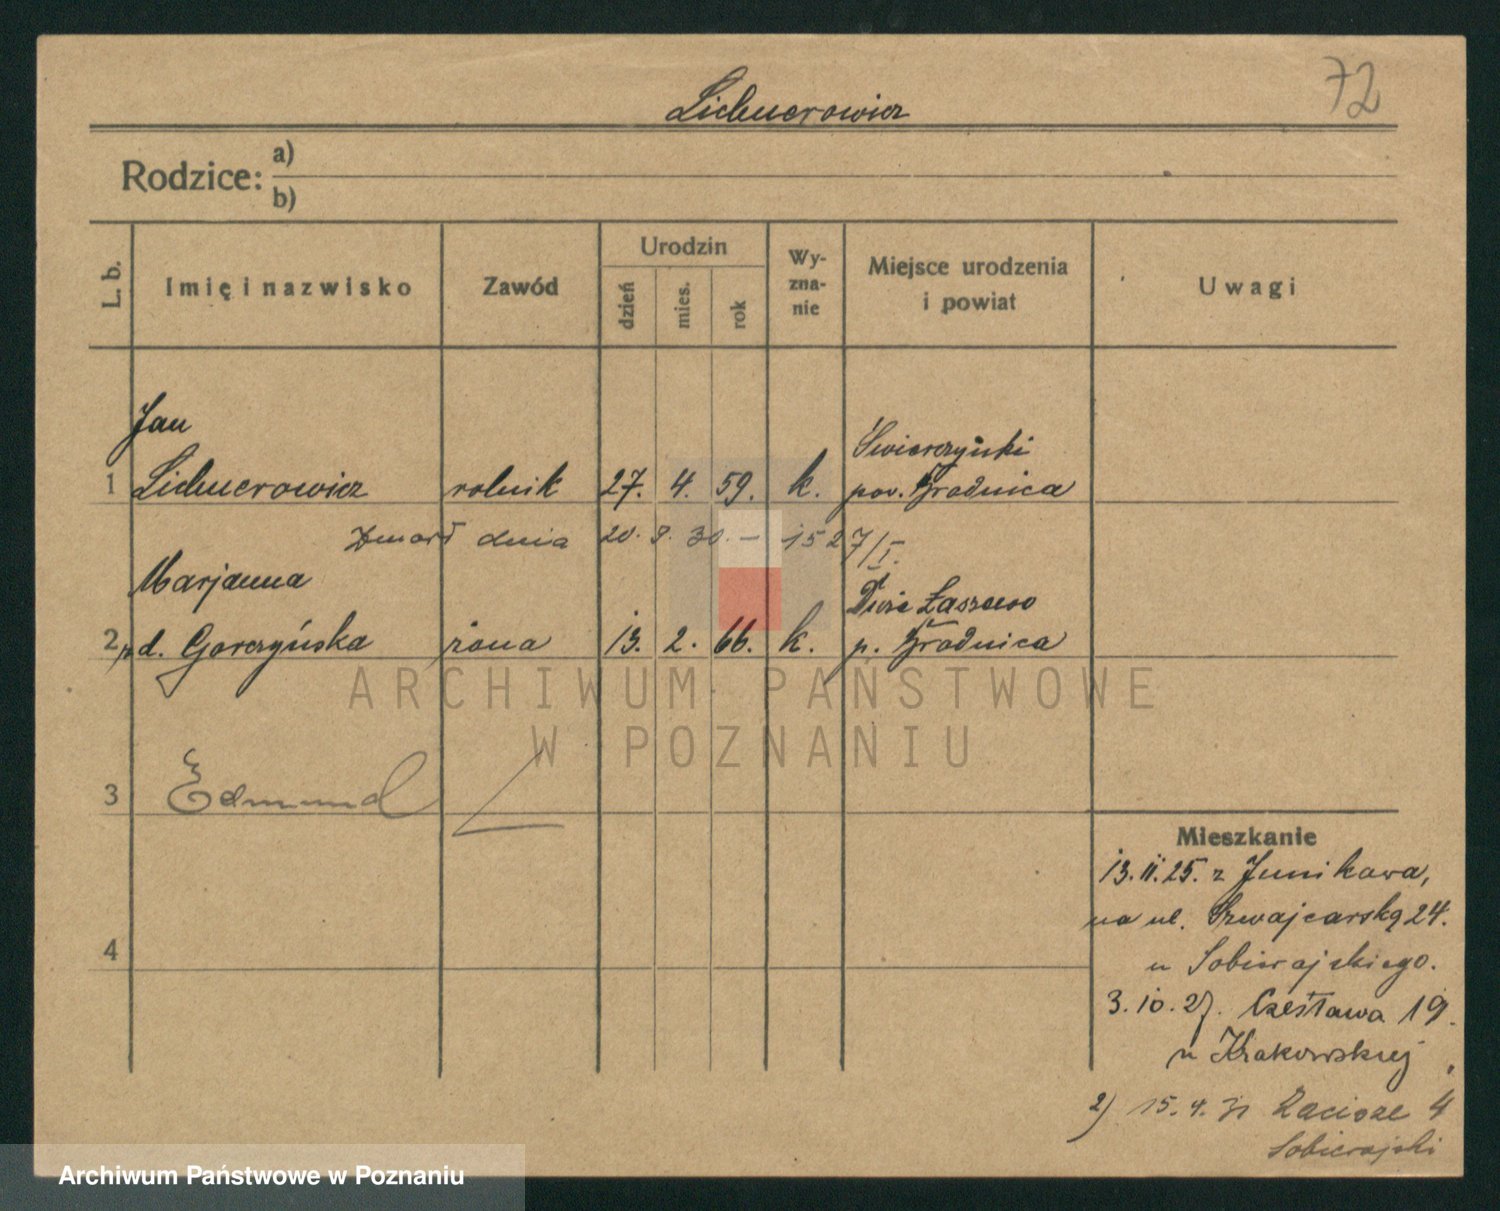 72
Lichnerowicz
Rodzice: a)
b)
L. b.
Imię i nazwisko
Zawód
Urodzin
dzień
mies.
rok
Wy-
zna-
nie
Miejsce urodzenia
i powiat
Uwagi
Jan
1 Lichnerowicz rolnik 27. 4. 59. k. Świerczyński
pow. Brodnica
Zmarł dnia 20. 9. 30. – 1527/I.
Marjanna
2 d. Gorczyńska żona 13. 2. 66. k. Duże Łaszewo
p. Brodnica
3 Edmund
4
Mieszkanie
13. 11. 25. z Junikowa,
na ul. Szwajcarską 24.
u Sobierajskiego.
3. 10. 27. Czesława 19.
u Krakowskiej
2) 15. 4. 31 Zacisze 4
Sobierajski
ARCHIWUM PAŃSTWOWE
W POZNANIU
Archiwum Państwowe w Poznaniu